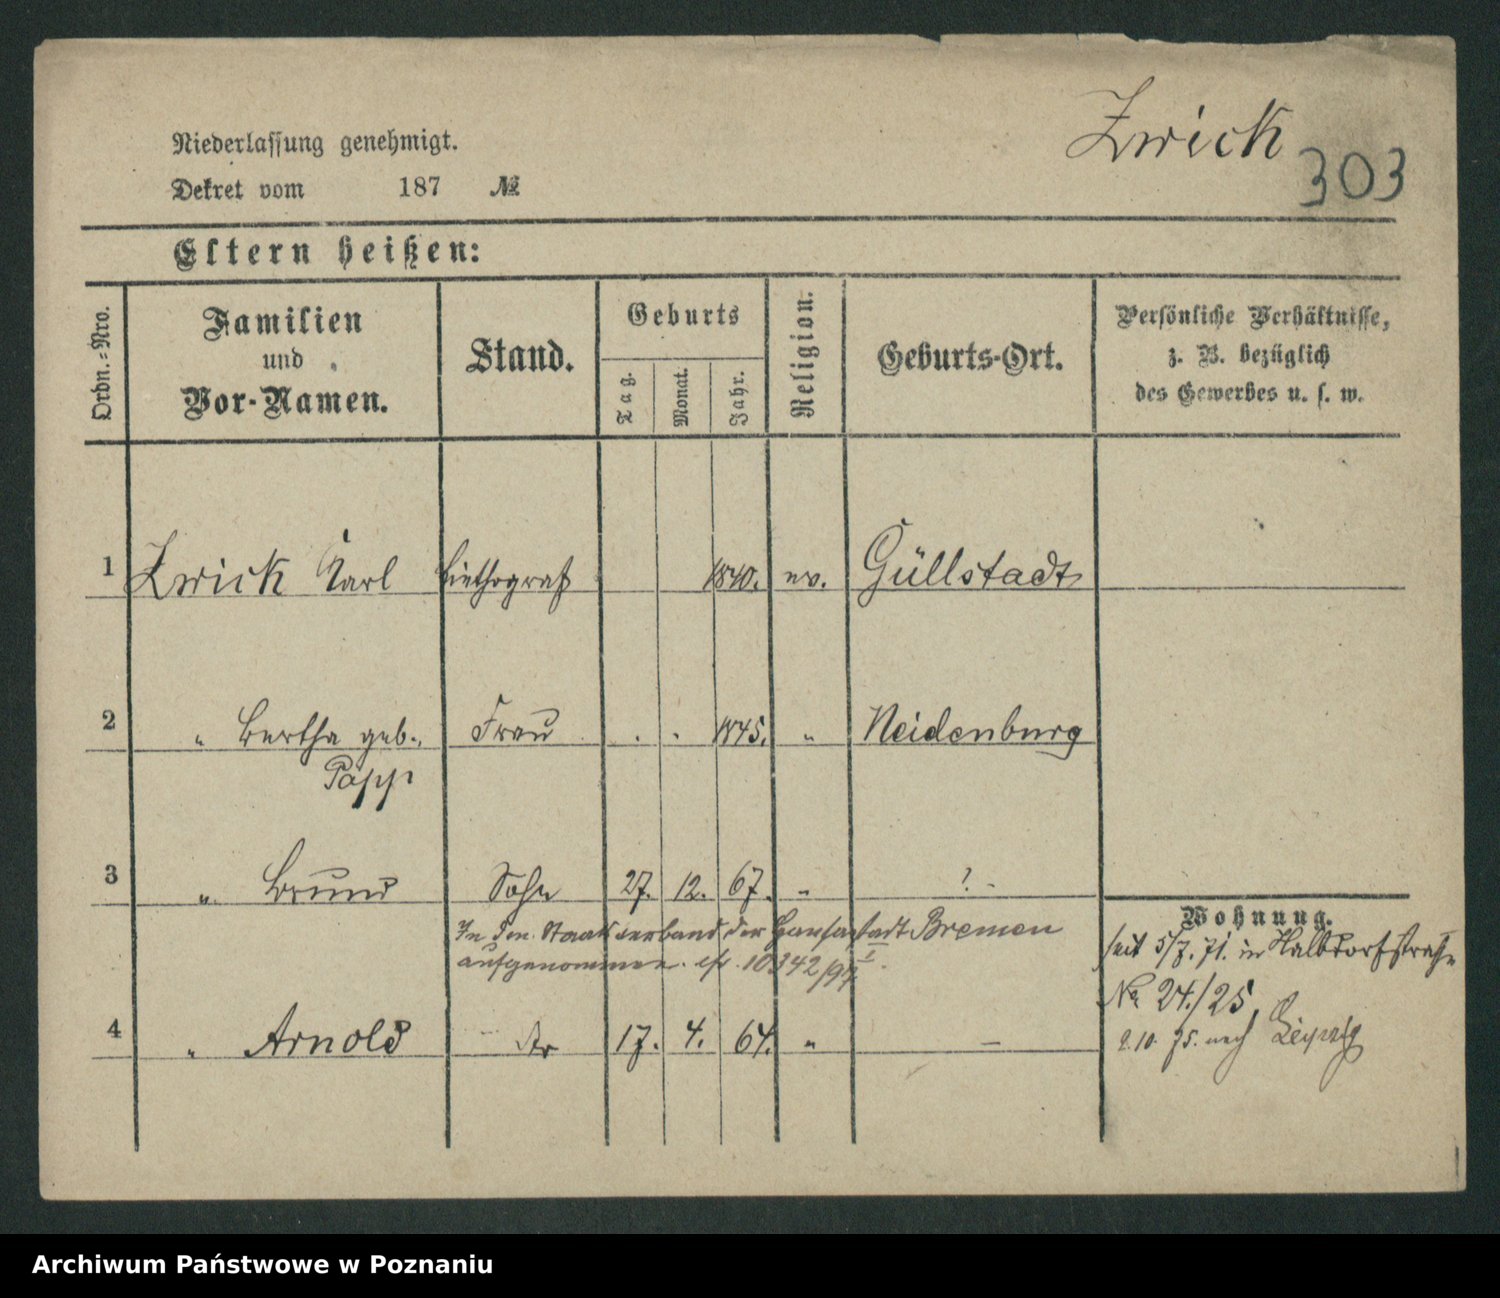 Zwick
303
Niederlassung genehmigt.
Dekret vom 187 №
Eltern heißen:
Ordn.-Nro.
Familien und Vor-Namen.
Stand.
Geburts
Tag.
Monat.
Jahr.
Religion.
Geburts-Ort.
Persönliche Verhältnisse,
z. B. bezüglich
des Gewerbes u. s. w.
1 Zwick Karl Liethograf 1840. ev. Güllstadt
2 " Bertha geb. Frau . . 1845. " Neidenburg
Papp
3 " Bruno Sohn 27. 12. 67. " ? -
In den Staatsverband der Hansastadt Bremen
aufgenommen. cfr. 10342/94 I.
4 " Arnold 17. 4. 64. " —
Wohnung.
seit 5/7. 71. in Halbdorfstraße
No 24./25,
2.10. 75. nach Leipzig
Archiwum Państwowe w Poznaniu